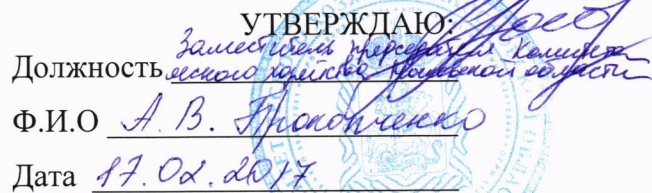 УТВЕРЖДАЮ:
Должность Заместитель председателя Комитета
лесного хозяйства Московской области
Ф.И.О А. В. Прокопченко
Дата 17.02.2017